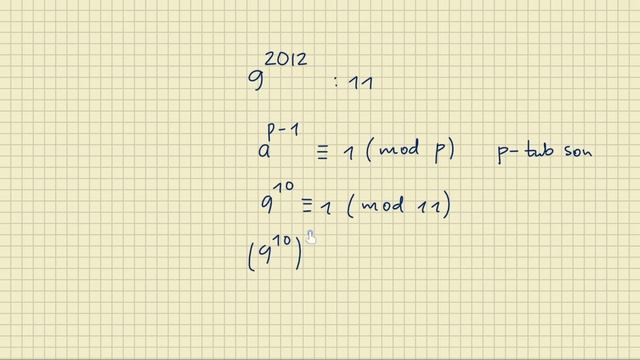 9^2012 : 11
a^p-1 ≡ 1 (mod p) p-tub son
9^10 ≡ 1 (mod 11)
(9^10)